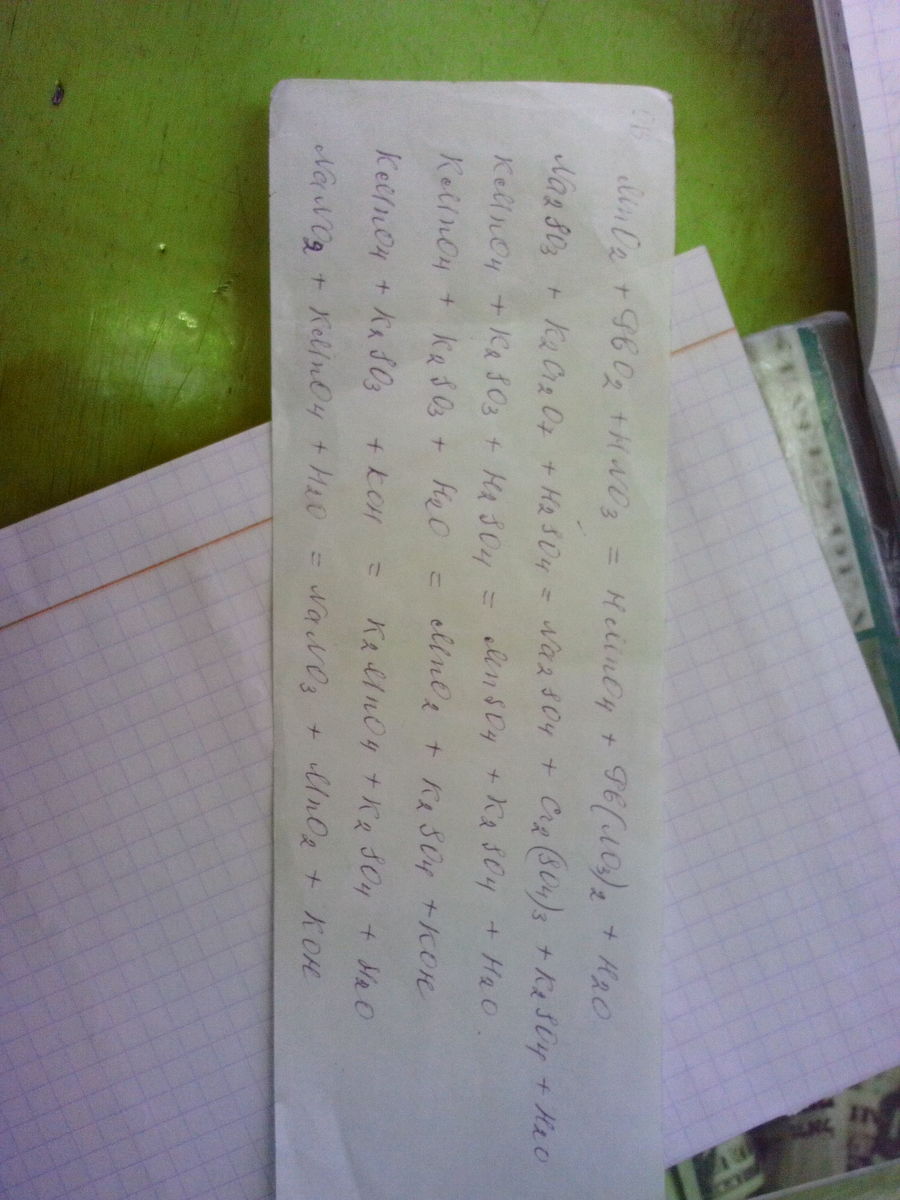 MnO2 + PbO2 + HNO3 = HMnO4 + Pb(NO3)2 + H2O
Na2SO3 + K2Cr2O7 + H2SO4 = Na2SO4 + Cr2(SO4)3 + K2SO4 + H2O
KMnO4 + K2SO3 + H2SO4 = MnSO4 + K2SO4 + H2O.
KMnO4 + K2SO3 + H2O = MnO2 + K2SO4 + KOH
KMnO4 + K2SO3 + KOH = K2MnO4 + K2SO4 + H2O
NaNO2 + KMnO4 + H2O = NaNO3 + MnO2 + KOH